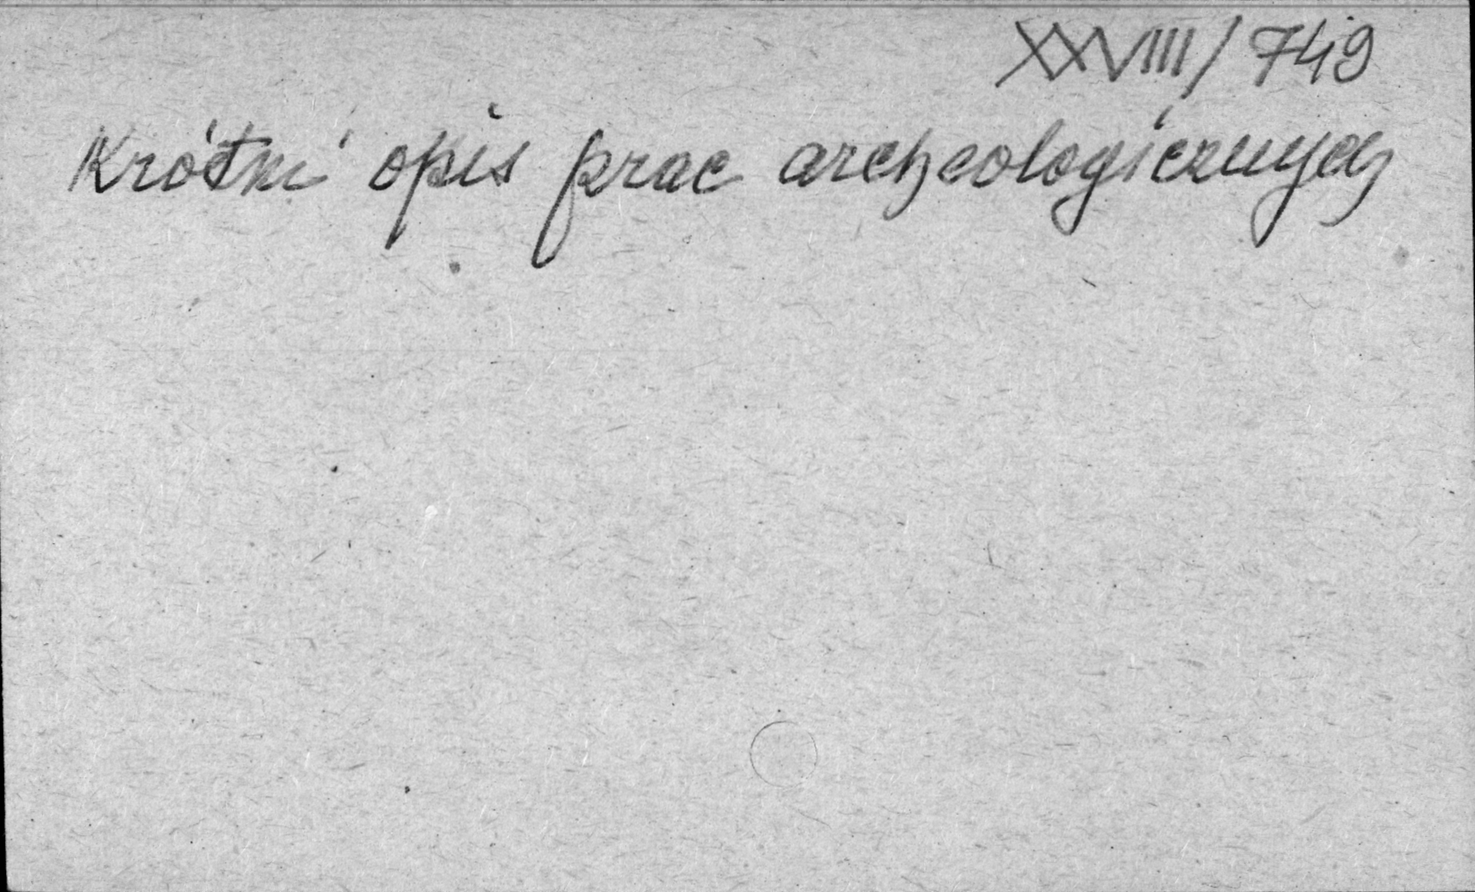 XXVIII/749
Krótki opis prac archeologicznych